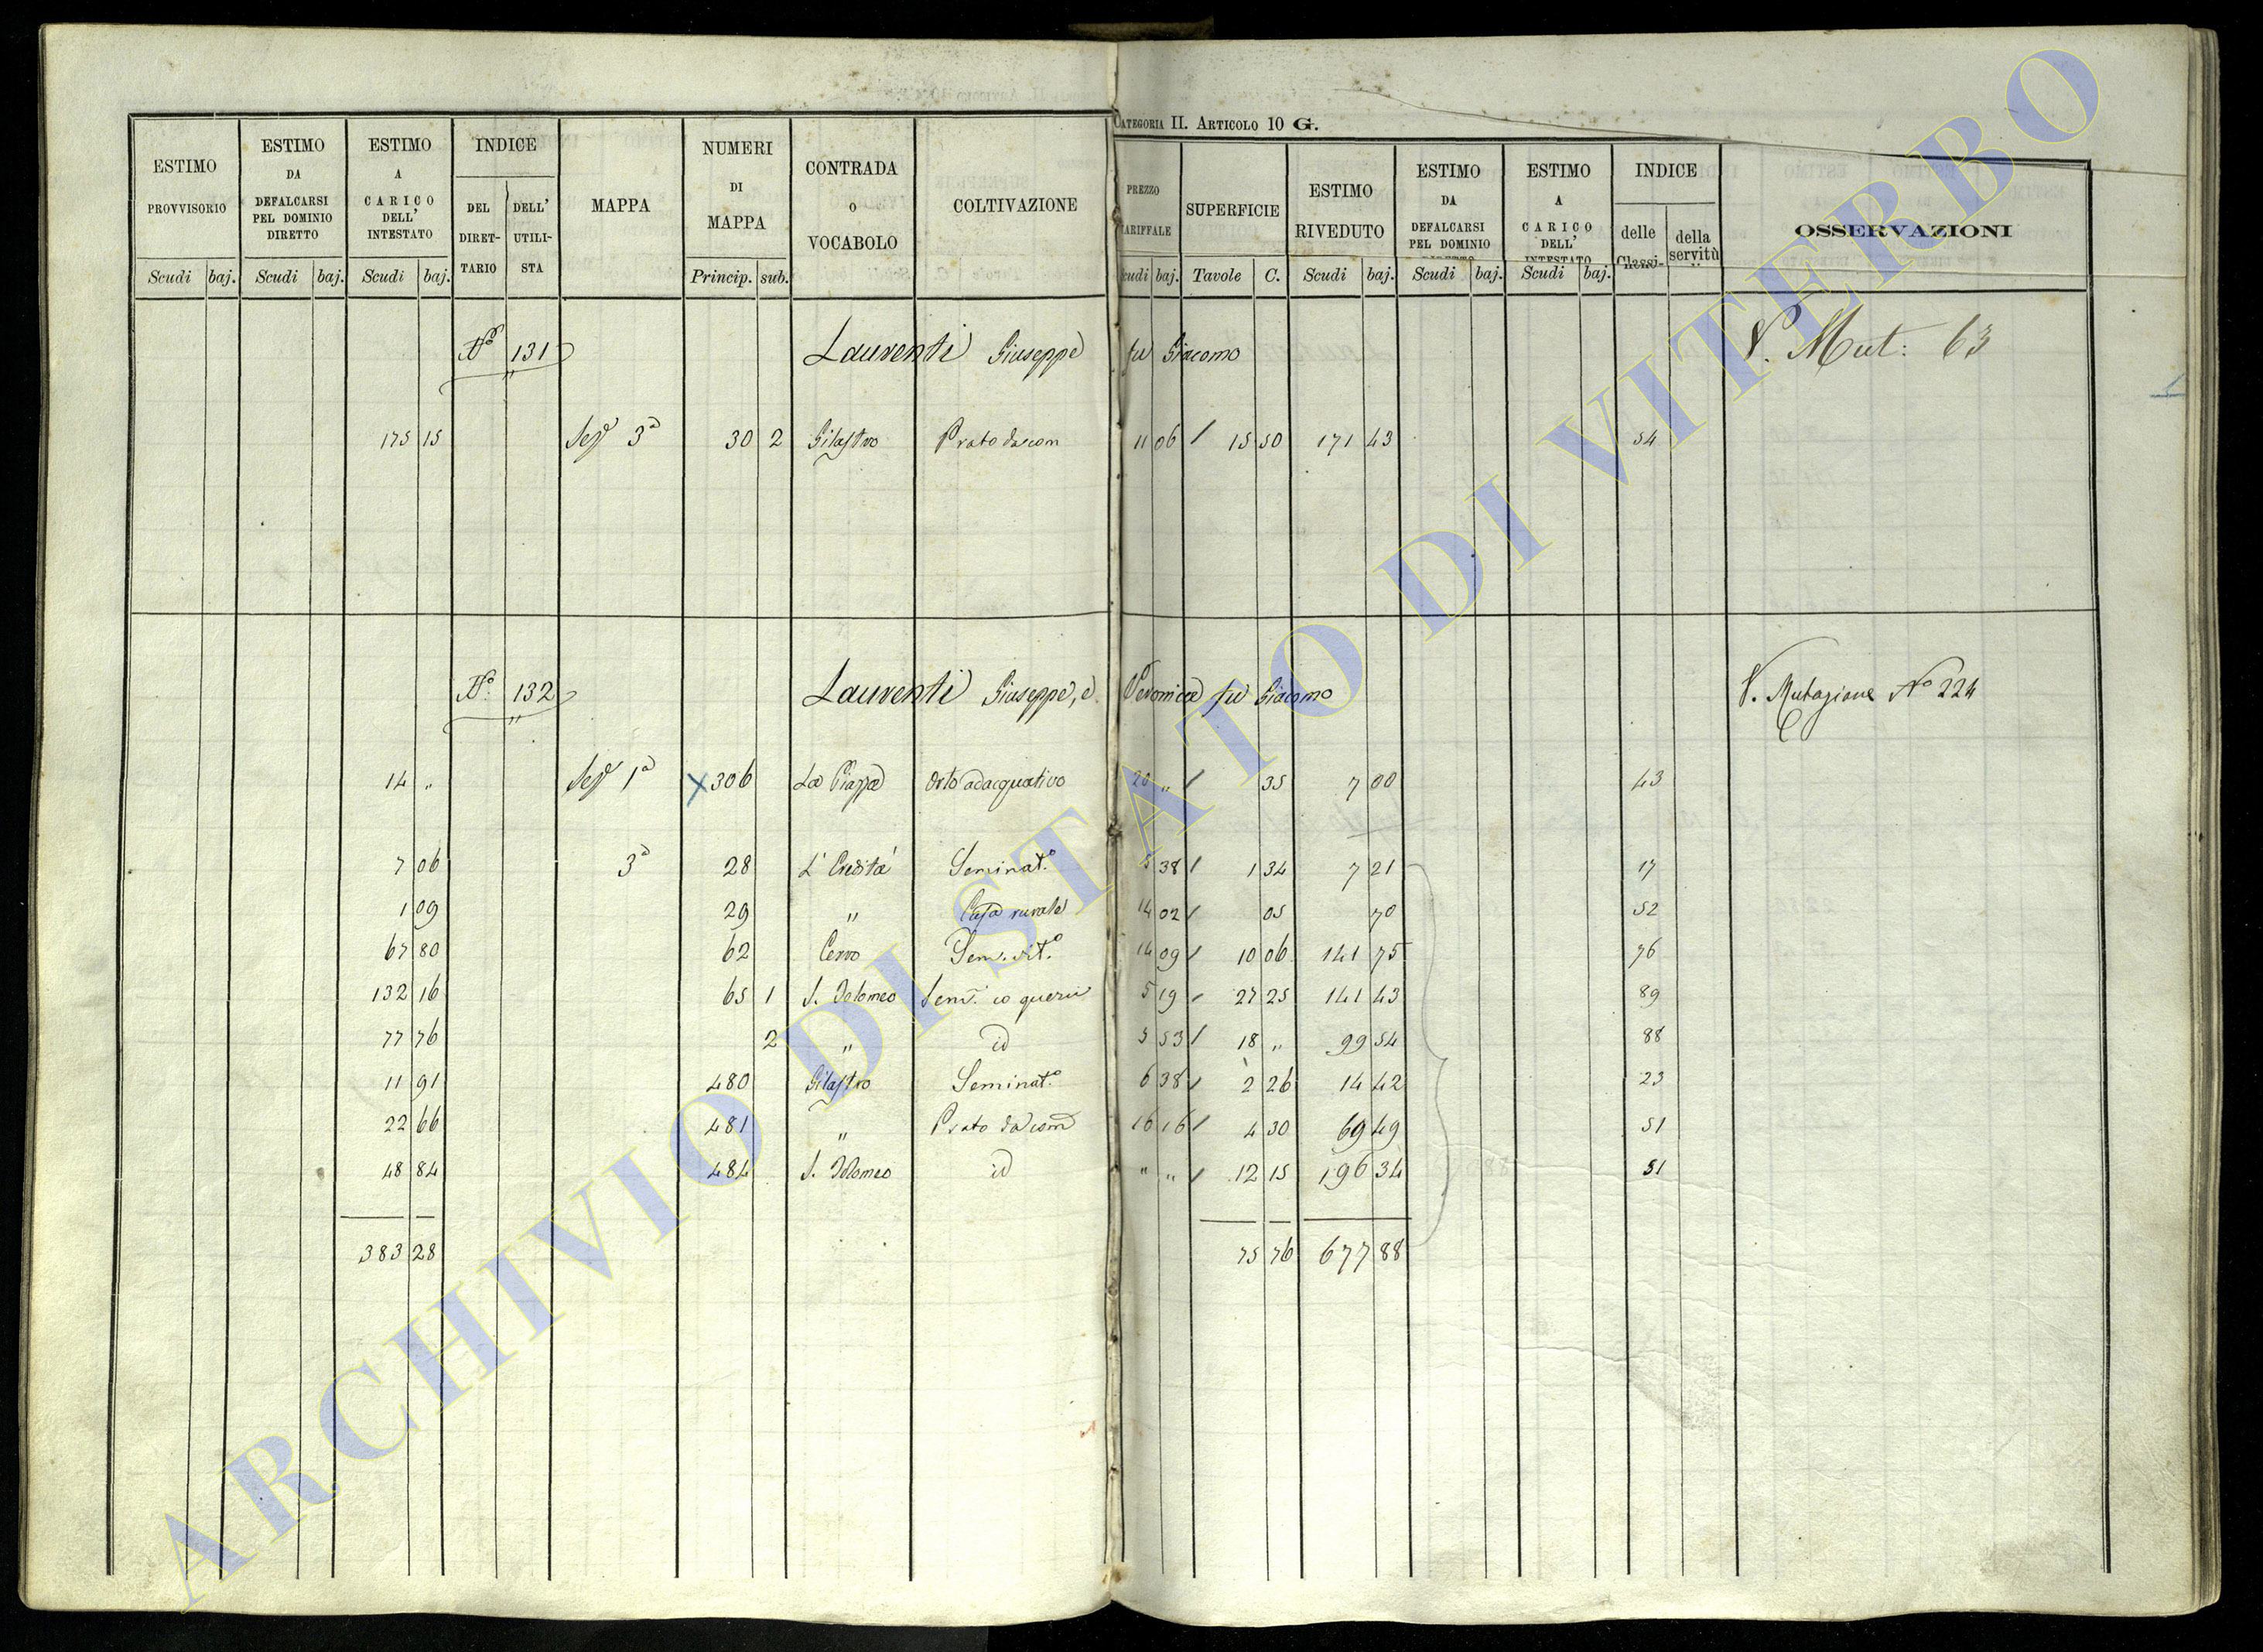 CATEGORIA II. ARTICOLO 10 G.
ESTIMO PROVVISORIO Scudi baj.
ESTIMO DA DEFALCARSI PEL DOMINIO DIRETTO Scudi baj.
ESTIMO A CARICO DELL' INTESTATO Scudi baj.
INDICE DEL DIRET-TARIO DELL' UTILI-STA
MAPPA
NUMERI DI MAPPA Princip. sub.
CONTRADA O VOCABOLO
COLTIVAZIONE
PREZZO TARIFFALE Scudi baj.
SUPERFICIE Tavole C.
ESTIMO RIVEDUTO Scudi baj.
ESTIMO DA DEFALCARSI PEL DOMINIO DIRETTO Scudi baj.
ESTIMO A CARICO DELL' INTESTATO Scudi baj.
INDICE delle Classi- della servitù
OSSERVAZIONI
N.o 131 Laurenti Giuseppe fu Giacomo V. Mut: 63
175 15 Sez.e 3a 30 2 Gilastro Prato da com 11 06 / 15 50 171 43 54
N.o 132 Laurenti Giuseppe, e Veronica fu Giacomo V. Mutazione No 224
14 „ Sez.e 1a X 306 La Piazza Orto adacquativo 20 „ / 35 7 00 43
7 06 3a 28 L' Eredita' Seminat.o 5 38 / 1 34 7 21 17
1 09 29 „ Casa rurale 14 02 / 05 70 52
67 80 62 Cerro Sem. vit.o 14 09 / 10 06 141 75 76
132 16 65 1 S. Tolomeo Sem. co querci 5 19 / 27 25 141 43 89
77 76 2 „ id 5 53 / 18 „ 99 54 88
11 91 480 Gilastro Seminat.o 6 38 / 2 26 14 42 23
22 66 481 „ Prato da com 16 16 / 4 30 69 49 51
48 84 484 S. Tolomeo id „ „ / 12 15 196 34 51
383 28 75 76 677 88
ARCHIVIO DI STATO DI VITERBO